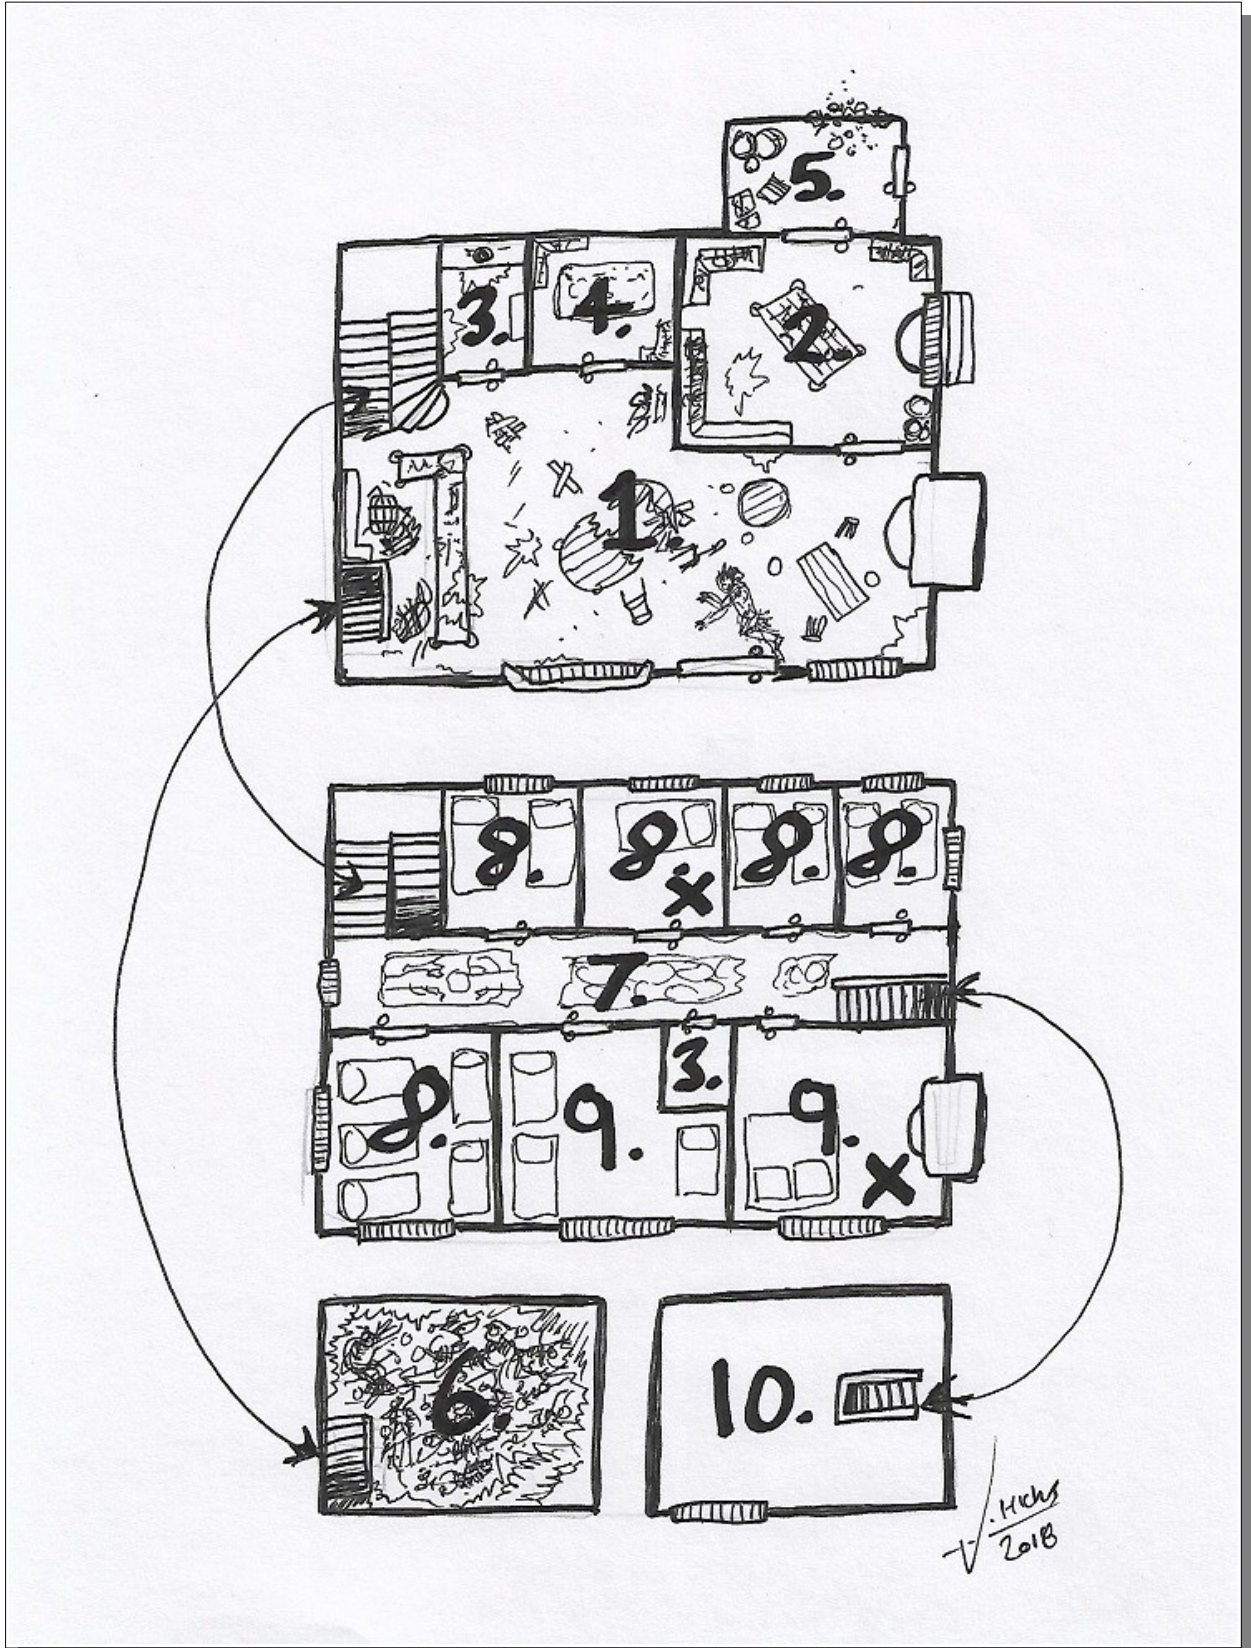 5.
3. 4. 2.
1.
8. 8. x 8. 8.
7.
8. 9. 3. 9. x
6. 10.
J. Hicks
2018